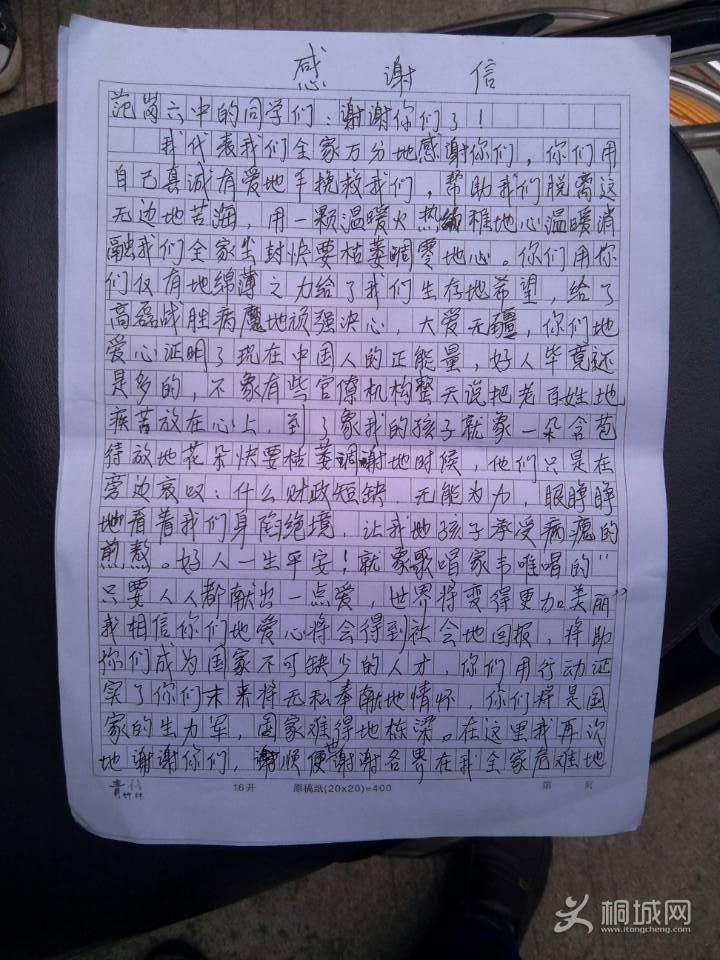 感谢信
范岗六中的同学们：谢谢你们了！
我代表我们全家万分地感谢你们，你们用
自己真诚有爱地手挽救我们，帮助我们脱离这
无边地苦海，用一颗温暖火热稚地心温暖消
融我们全家尘封快要枯萎凋零地心。你们用你
们仅有地绵薄之力给了我们生存地希望，给了
高磊战胜病魔地顽强决心，大爱无疆，你们地
爱心证明了现在中国人的正能量，好人毕竟还
是多的，不象有些官僚机构整天说把老百姓地
疾苦放在心上，到了象我的孩子就象一朵含苞
待放地花朵快要枯萎凋谢地时候，他们只是在
旁边哀叹：什么财政短缺，无能为力，眼睁睁
地看着我们身陷绝境，让我地孩子承受病魔的
煎熬。好人一生平安！就象歌唱家韦唯唱的“
只要人人都献出一点爱，世界将变得更加美丽”
我相信你们地爱心将会得到社会地回报，将助
你们成为国家不可缺少的人才，你们用行动证
实了你们未来将无私奉献地情怀，你们将是国
家的生力军，国家难得地栋梁。在这里我再次
地谢谢你们，顺便也谢谢各界在我全家危难地
青竹林 16开 原稿纸(20x20)=400 第 页
桐城网
www.itongcheng.com